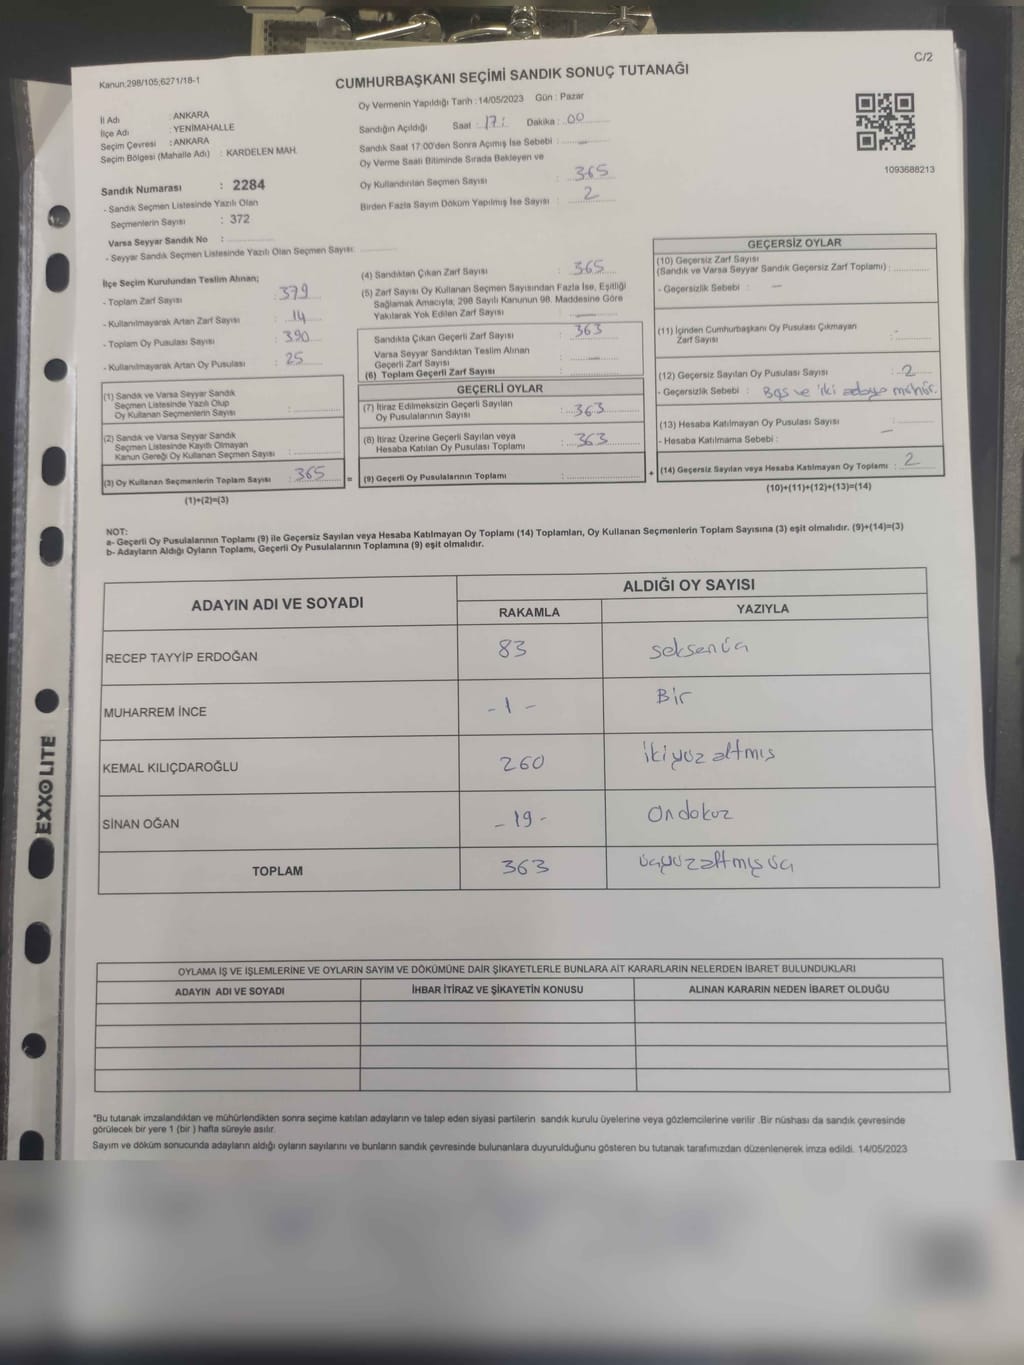 C/2
Kanun:298/105;6271/18-1
CUMHURBAŞKANI SEÇİMİ SANDIK SONUÇ TUTANAĞI
Oy Vermenin Yapıldığı Tarih : 14/05/2023 Gün : Pazar
İl Adı : ANKARA
İlçe Adı : YENİMAHALLE
Seçim Çevresi : ANKARA
Seçim Bölgesi (Mahalle Adı) : KARDELEN MAH.
Sandık Numarası : 2284
- Sandık Seçmen Listesinde Yazılı Olan
Seçmenlerin Sayısı : 372
Varsa Seyyar Sandık No :
- Seyyar Sandık Seçmen Listesinde Yazılı Olan Seçmen Sayısı:
Sandığın Açıldığı Saat : 17 : Dakika : 00
Sandık Saat 17:00'den Sonra Açımış İse Sebebi : —
Oy Verme Saati Bitiminde Sırada Bekleyen ve
Oy Kullandırılan Seçmen Sayısı : 365
Birden Fazla Sayım Döküm Yapılmış İse Sayısı : 2
1093688213
İlçe Seçim Kurulundan Teslim Alınan;
- Toplam Zarf Sayısı : 379
- Kullanılmayarak Artan Zarf Sayısı : 14
- Toplam Oy Pusulası Sayısı : 390
- Kullanılmayarak Artan Oy Pusulası : 25
(1) Sandık ve Varsa Seyyar Sandık
Seçmen Listesinde Yazılı Olup
Oy Kullanan Seçmenlerin Sayısı :
(2) Sandık ve Varsa Seyyar Sandık
Seçmen Listesinde Kayıtlı Olmayan
Kanun Gereği Oy Kullanan Seçmen Sayısı :
(3) Oy Kullanan Seçmenlerin Toplam Sayısı : 365
(1)+(2)=(3)
(4) Sandıktan Çıkan Zarf Sayısı : 365
(5) Zarf Sayısı Oy Kullanan Seçmen Sayısından Fazla İse, Eşitliği
Sağlamak Amacıyla, 298 Sayılı Kanunun 98. Maddesine Göre
Yakılarak Yok Edilen Zarf Sayısı : —
Sandıkta Çıkan Geçerli Zarf Sayısı : 363
Varsa Seyyar Sandıktan Teslim Alınan
Geçerli Zarf Sayısı : —
(6) Toplam Geçerli Zarf Sayısı :
GEÇERLİ OYLAR
(7) İtiraz Edilmeksizin Geçerli Sayılan
Oy Pusulalarının Sayısı : 363
(8) İtiraz Üzerine Geçerli Sayılan veya
Hesaba Katılan Oy Pusulası Toplamı : 363
= (9) Geçerli Oy Pusulalarının Toplamı :
+
GEÇERSİZ OYLAR
(10) Geçersiz Zarf Sayısı
(Sandık ve Varsa Seyyar Sandık Geçersiz Zarf Toplamı) :
- Geçersizlik Sebebi : —
(11) İçinden Cumhurbaşkanı Oy Pusulası Çıkmayan
Zarf Sayısı : -
(12) Geçersiz Sayılan Oy Pusulası Sayısı : 2
- Geçersizlik Sebebi : Boş ve iki adaya mühür.
(13) Hesaba Katılmayan Oy Pusulası Sayısı : -
- Hesaba Katılmama Sebebi : —
(14) Geçersiz Sayılan veya Hesaba Katılmayan Oy Toplamı : 2
(10)+(11)+(12)+(13)=(14)
NOT:
a- Geçerli Oy Pusulalarının Toplamı (9) ile Geçersiz Sayılan veya Hesaba Katılmayan Oy Toplamı (14) Toplamları, Oy Kullanan Seçmenlerin Toplam Sayısına (3) eşit olmalıdır. (9)+(14)=(3)
b- Adayların Aldığı Oyların Toplamı, Geçerli Oy Pusulalarının Toplamına (9) eşit olmalıdır.
ADAYIN ADI VE SOYADI
ALDIĞI OY SAYISI
RAKAMLA YAZIYLA
RECEP TAYYİP ERDOĞAN 83 seksenüç
MUHARREM İNCE - 1 - Bir
KEMAL KILIÇDAROĞLU 260 ikiyüz altmış
SİNAN OĞAN - 19 - Ondokuz
TOPLAM 363 üçyüzaltmışüç
OYLAMA İŞ VE İŞLEMLERİNE VE OYLARIN SAYIM VE DÖKÜMÜNE DAİR ŞİKAYETLERLE BUNLARA AİT KARARLARIN NELERDEN İBARET BULUNDUKLARI
ADAYIN ADI VE SOYADI İHBAR İTİRAZ VE ŞİKAYETİN KONUSU ALINAN KARARIN NEDEN İBARET OLDUĞU
*Bu tutanak imzalandıktan ve mühürlendikten sonra seçime katılan adayların ve talep eden siyasi partilerin sandık kurulu üyelerine veya gözlemcilerine verilir .Bir nüshası da sandık çevresinde
görülecek bir yere 1 (bir ) hafta süreyle asılır.
Sayım ve döküm sonucunda adayların aldığı oyların sayılarını ve bunların sandık çevresinde bulunanlara duyurulduğunu gösteren bu tutanak tarafımızdan düzenlenerek imza edildi. 14/05/2023
EXXOLITE